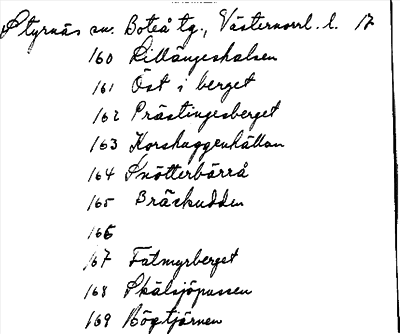 Styrnäs sn. Boteå tg., Västernorrl. l. 17
160 Lillängeshalsen
161 Öst i berget
162 Prästingesberget
163 Korshuggenhällan
164 Snötterbärrå
165 Bräckudden
166
167 Fatmyrberget
168 Skälsjöpussen
169 Högtjärnen